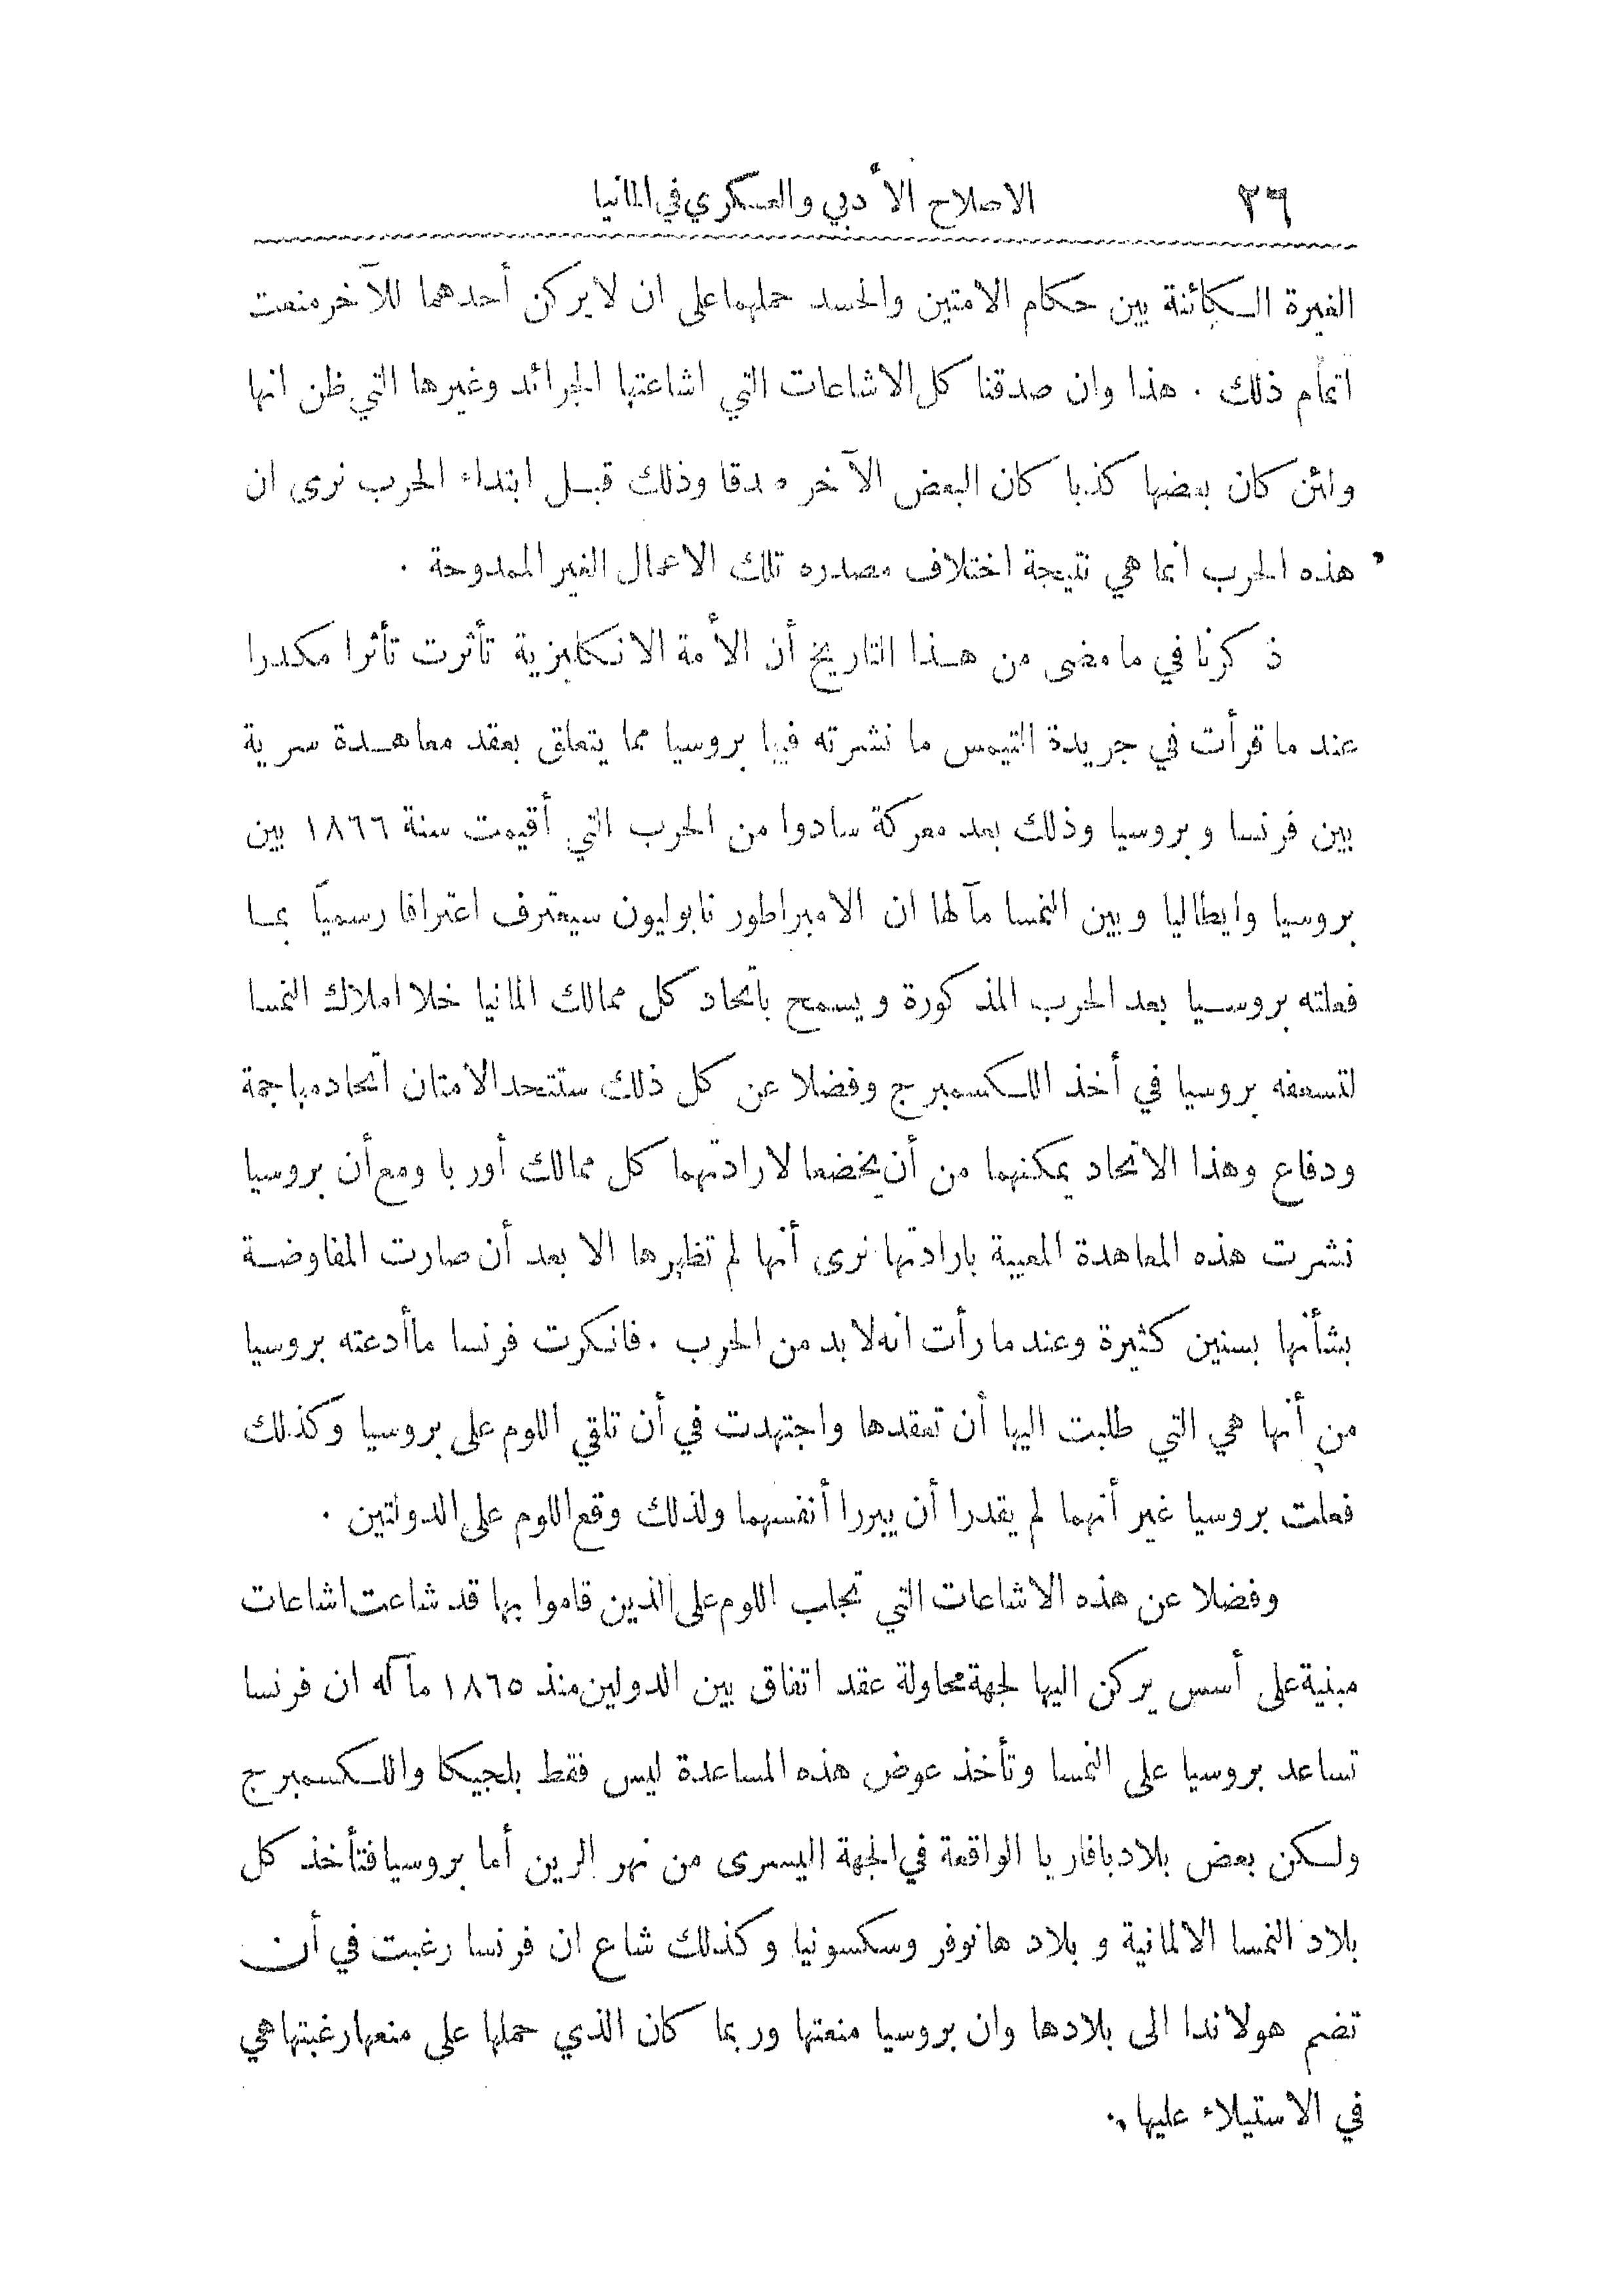 ٣٦ الاصلاح الأدبي والعسكري في المانيا
الغيرة الكائنة بين حكام الامتين والحسد حملهما على ان لا يركن أحدهما للآخر منعت
اتمام ذلك . هذا وان صدقنا كل الاشاعات التي اشاعتها الجرائد وغيرها التي ظن انها
ولئن كان بعضها كذبا كان البعض الآخر صدقا وذلك قبل ابتداء الحرب نرى ان
هذه الحرب انما هي نتيجة اختلاف مصدره تلك الاعمال الغير الممدوحة .
ذكرنا في ما مضى من هذا التاريخ أن الأمة الانكليزية تأثرت تأثرا مكدرا
عند ما قرأت في جريدة التيمس ما نشرته فيها بروسيا مما يتعلق بعقد معاهدة سرية
بين فرنسا وبروسيا وذلك بعد معركة سادوا من الحرب التي أقيمت سنة ١٨٦٦ بين
بروسيا وايطاليا وبين النمسا مآلها ان الامبراطور نابوليون سيعترف اعترافا رسمياً بما
فعلته بروسيا بعد الحرب المذكورة ويسمح باتحاد كل ممالك المانيا خلا املاك النمسا
لتسعفه بروسيا في أخذ اللكسمبرج وفضلا عن كل ذلك ستتحد الامتان اتحاد مهاجمة
ودفاع وهذا الاتحاد يمكنهما من أن يخضعا لارادتهما كل ممالك أوربا ومع أن بروسيا
نشرت هذه المعاهدة المعيبة بارادتها نرى أنها لم تظهرها الا بعد أن صارت المفاوضة
بشأنها بسنين كثيرة وعند ما رأت انه لا بد من الحرب . فانكرت فرنسا ما أدعته بروسيا
من أنها هي التي طلبت اليها أن تعقدها واجتهدت في أن تلقي اللوم على بروسيا وكذلك
فعلت بروسيا غير أنهما لم يقدرا أن يبررا أنفسهما ولذلك وقع اللوم على الدولتين .
وفضلا عن هذه الاشاعات التي تجلب اللوم على الذين قاموا بها قد شاعت اشاعات
مبنية على أسس يركن اليها لجهة محاولة عقد اتفاق بين الدولين منذ ١٨٦٥ مآله ان فرنسا
تساعد بروسيا على النمسا وتأخذ عوض هذه المساعدة ليس فقط بلجيكا واللكسمبرج
ولكن بعض بلاد بافاريا الواقعة في الجهة اليسرى من نهر الرين أما بروسيا فتأخذ كل
بلاد النمسا الالمانية وبلاد هانوفر وسكسونيا وكذلك شاع ان فرنسا رغبت في أن
تضم هولاندا الى بلادها وان بروسيا منعتها وربما كان الذي حملها على منعها رغبتها هي
في الاستيلاء عليها .